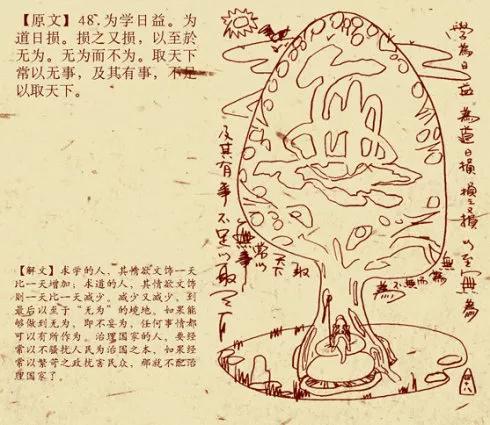 【原文】48、为学日益。为
道日损。损之又损，以至於
无为。无为而不为。取天下
常以无事，及其有事，不足
以取天下。
【解文】求学的人，其情欲文饰一天
比一天增加；求道的人，其情欲文饰
则一天比一天减少。减少又减少，到
最后以至于“无为”的境地。如果能
够做到无为，即不妄为，任何事情都
可以有所作为。治理国家的人，要经
常以不骚扰人民为治国之本，如果经
常以繁苛之政扰害民众，那就不配治
理国家了。
學為日益為道日損損之又損以至無為
為不無而為無
取天下常以無事
及其有事不足以取天下
四八